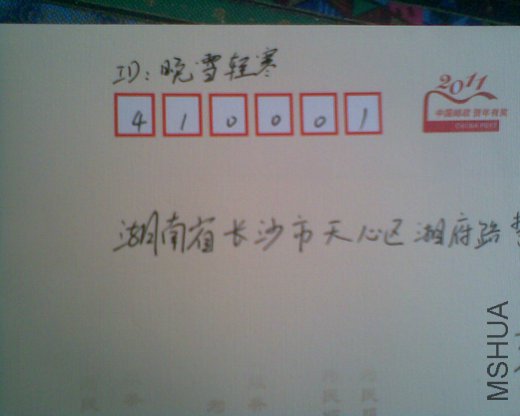 ID：晓雪轻寒
410001
2011
中国邮政 贺年有奖
CHINA POST
湖南省长沙市天心区湖府路
MSHUA